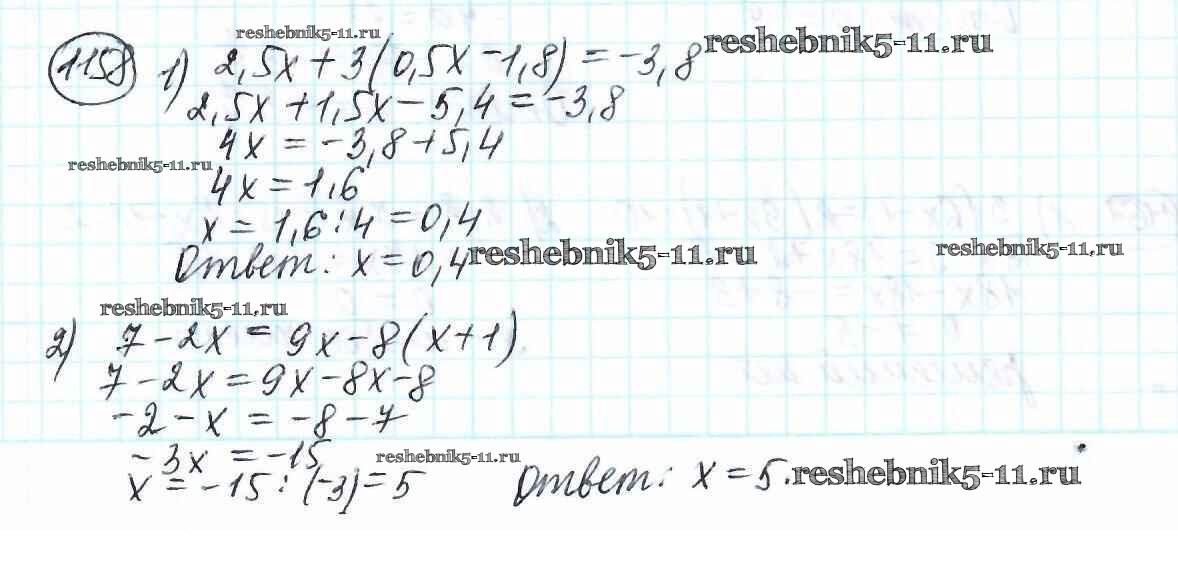 reshebnik5-11.ru
1158 1) 2,5x + 3(0,5x - 1,8) = -3,8 reshebnik5-11.ru
2,5x + 1,5x - 5,4 = -3,8
4x = -3,8 + 5,4
reshebnik5-11.ru
4x = 1,6
x = 1,6 : 4 = 0,4
Ответ: x = 0,4 reshebnik5-11.ru reshebnik5-11.ru
reshebnik5-11.ru
2) 7 - 2x = 9x - 8(x + 1)
7 - 2x = 9x - 8x - 8
-2 - x = -8 - 7
-3x = -15 reshebnik5-11.ru
x = -15 : (-3) = 5 Ответ: x = 5. reshebnik5-11.ru